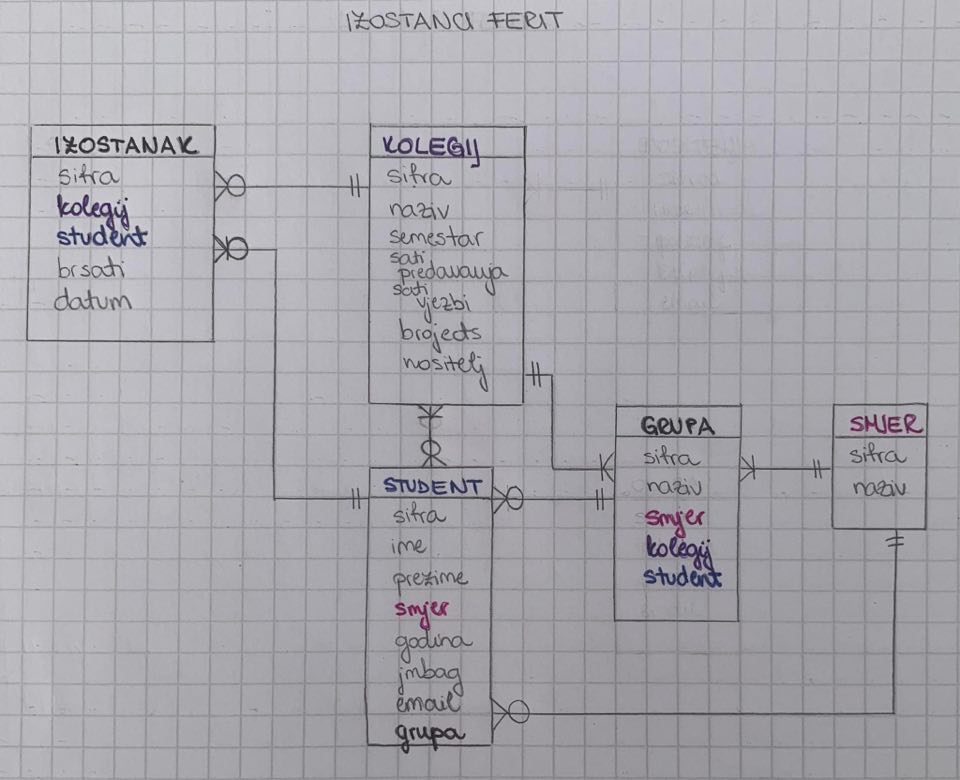 IZOSTANCI FERIT
IZOSTANAK
sifra
kolegij
student
brsati
datum
KOLEGIJ
sifra
naziv
semestar
sati
predavanja
sati
vjezbi
brojects
nositelj
STUDENT
sifra
ime
prezime
smjer
godina
jmbag
email
grupa
GRUPA
sifra
naziv
smjer
kolegij
student
SMJER
sifra
naziv